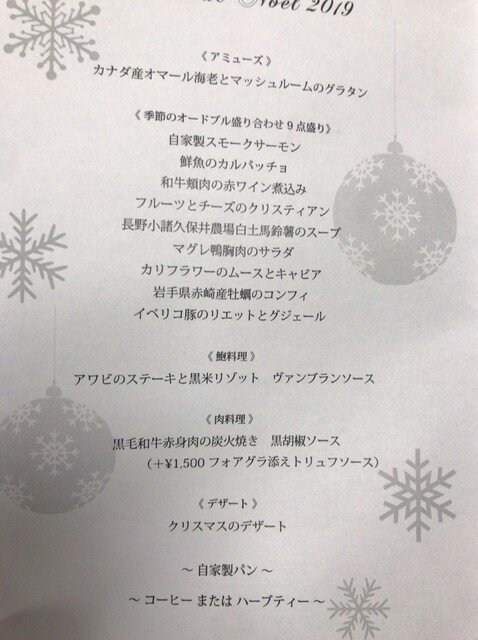 Noël 2019
《 アミューズ 》
カナダ産オマール海老とマッシュルームのグラタン
《 季節のオードブル盛り合わせ 9 点盛り》
自家製スモークサーモン
鮮魚のカルパッチョ
和牛頬肉の赤ワイン煮込み
フルーツとチーズのクリスティアン
長野小諸久保井農場白土馬鈴薯のスープ
マグレ鴨胸肉のサラダ
カリフラワーのムースとキャビア
岩手県赤崎産牡蠣のコンフィ
イベリコ豚のリエットとグジェール
《 鮑料理 》
アワビのステーキと黒米リゾット　ヴァンブランソース
《 肉料理 》
黒毛和牛赤身肉の炭火焼き　黒胡椒ソース
（＋¥1,500 フォアグラ添えトリュフソース）
《 デザート 》
クリスマスのデザート
～ 自家製パン ～
～ コーヒー または ハーブティー ～